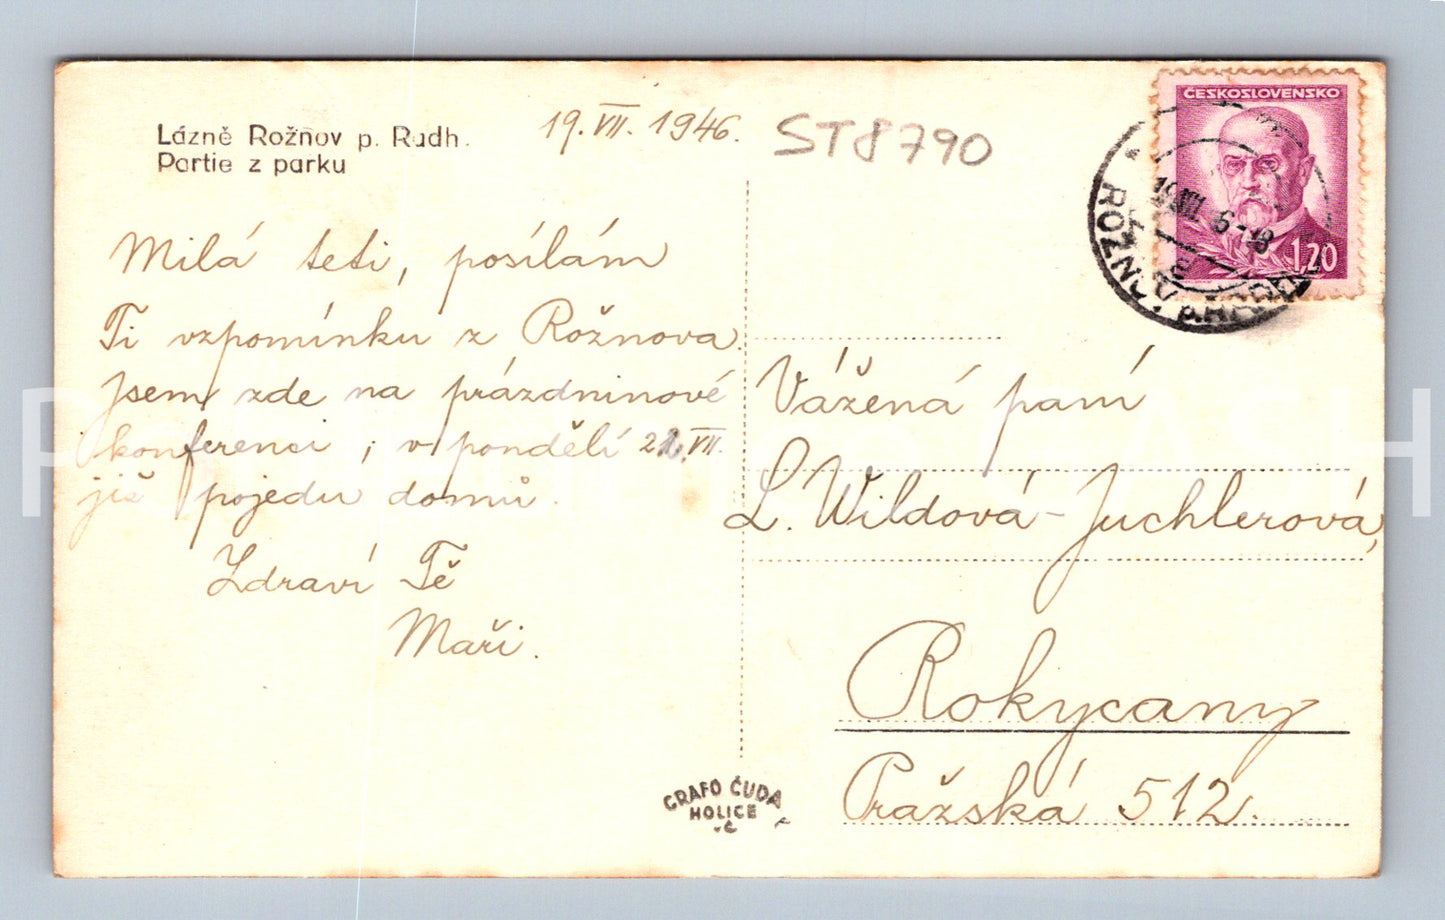 Lázně Rožnov p. Radh.
Partie z parku
19. VII. 1946.
ST8790
ČESKOSLOVENSKO
1,20
Milá teti, posílám
Ti vzpomínku z Rožnova.
Jsem zde na prázdninové
konferenci, v pondělí VII.
již pojedu domů.
Zdraví Tě
Maři.
Vážená paní
L. Wildová-Juchlerová,
Rokycany
Pražská 512.
GRAFO ČUDA
HOLICE
v. Č